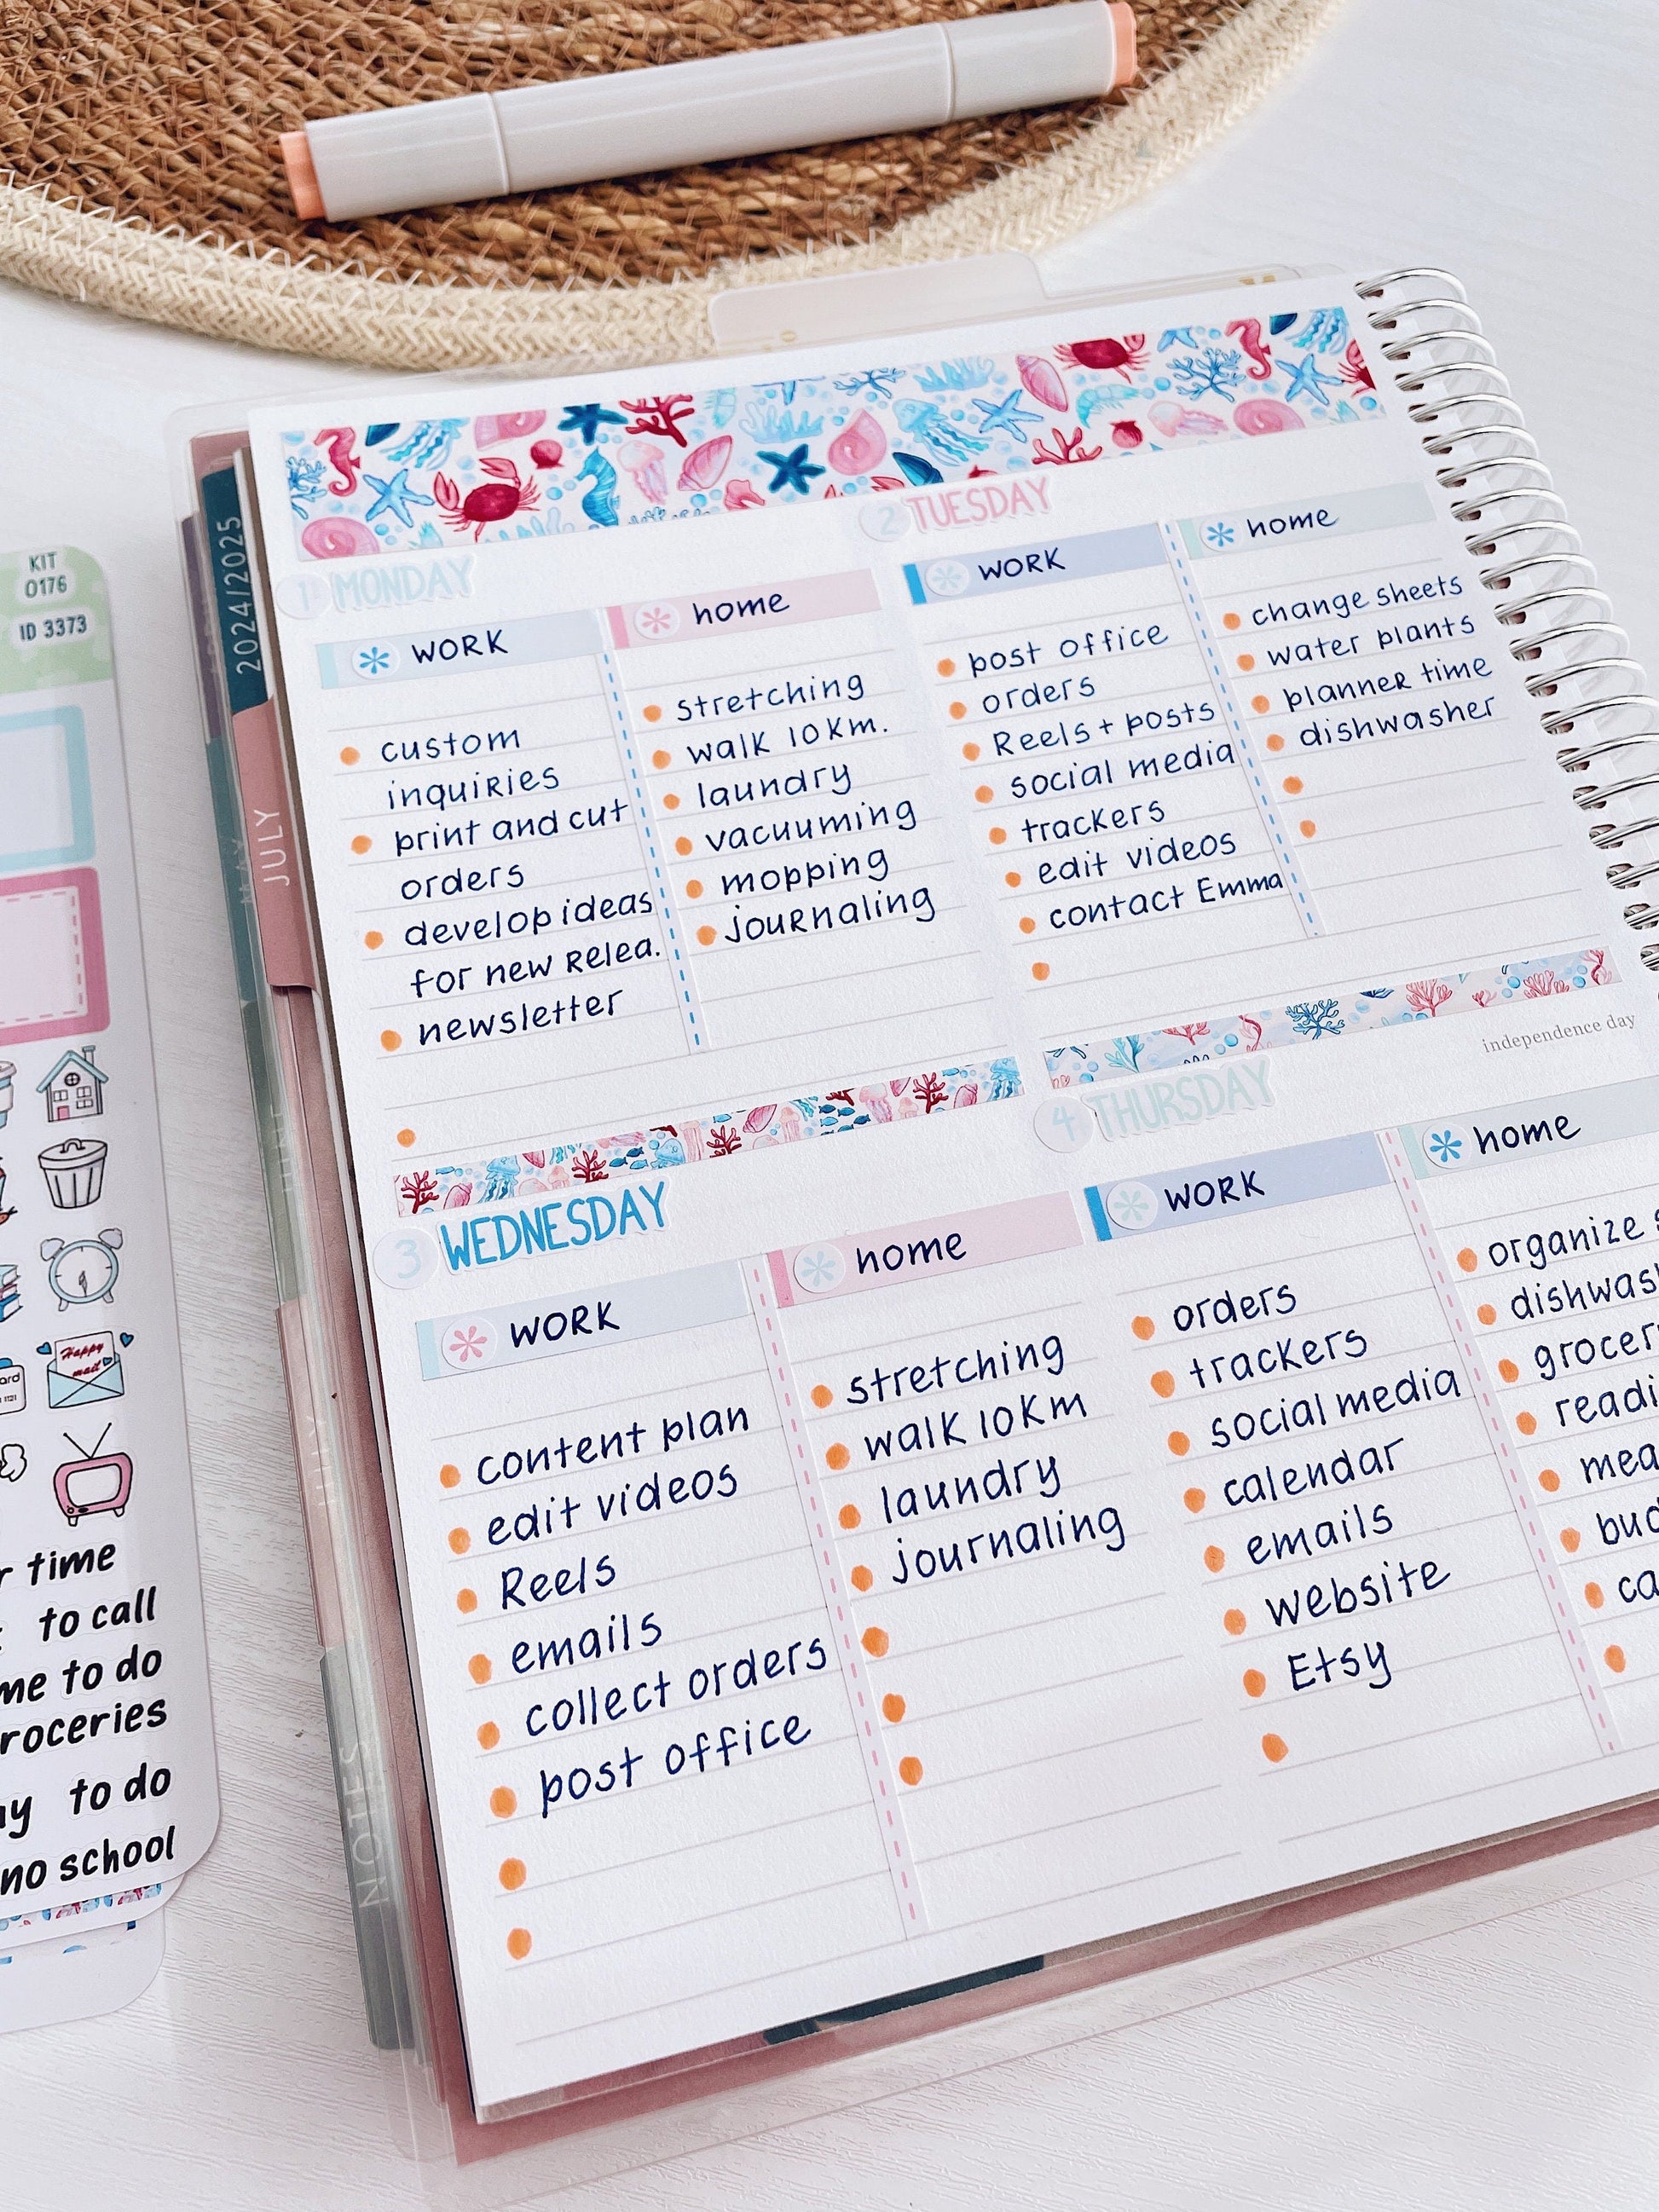 KIT
0176
ID 3373
Happy
mail
time
to call
to do
to do
no school
2024/2025
MAY
JULY
JULY
NOTES
1 MONDAY
WORK
custom
inquiries
print and cut
orders
develop ideas
for new Relea.
newsletter
home
stretching
walk 10Km.
laundry
vacuuming
mopping
journaling
2 TUESDAY
WORK
post office
orders
Reels + posts
social media
trackers
edit videos
contact Emma
home
change sheets
water plants
planner time
dishwasher
3 WEDNESDAY
WORK
content plan
edit videos
Reels
emails
collect orders
post office
home
stretching
walk 10Km
laundry
journaling
independence day
4 THURSDAY
WORK
orders
trackers
social media
calendar
emails
website
Etsy
home
organize